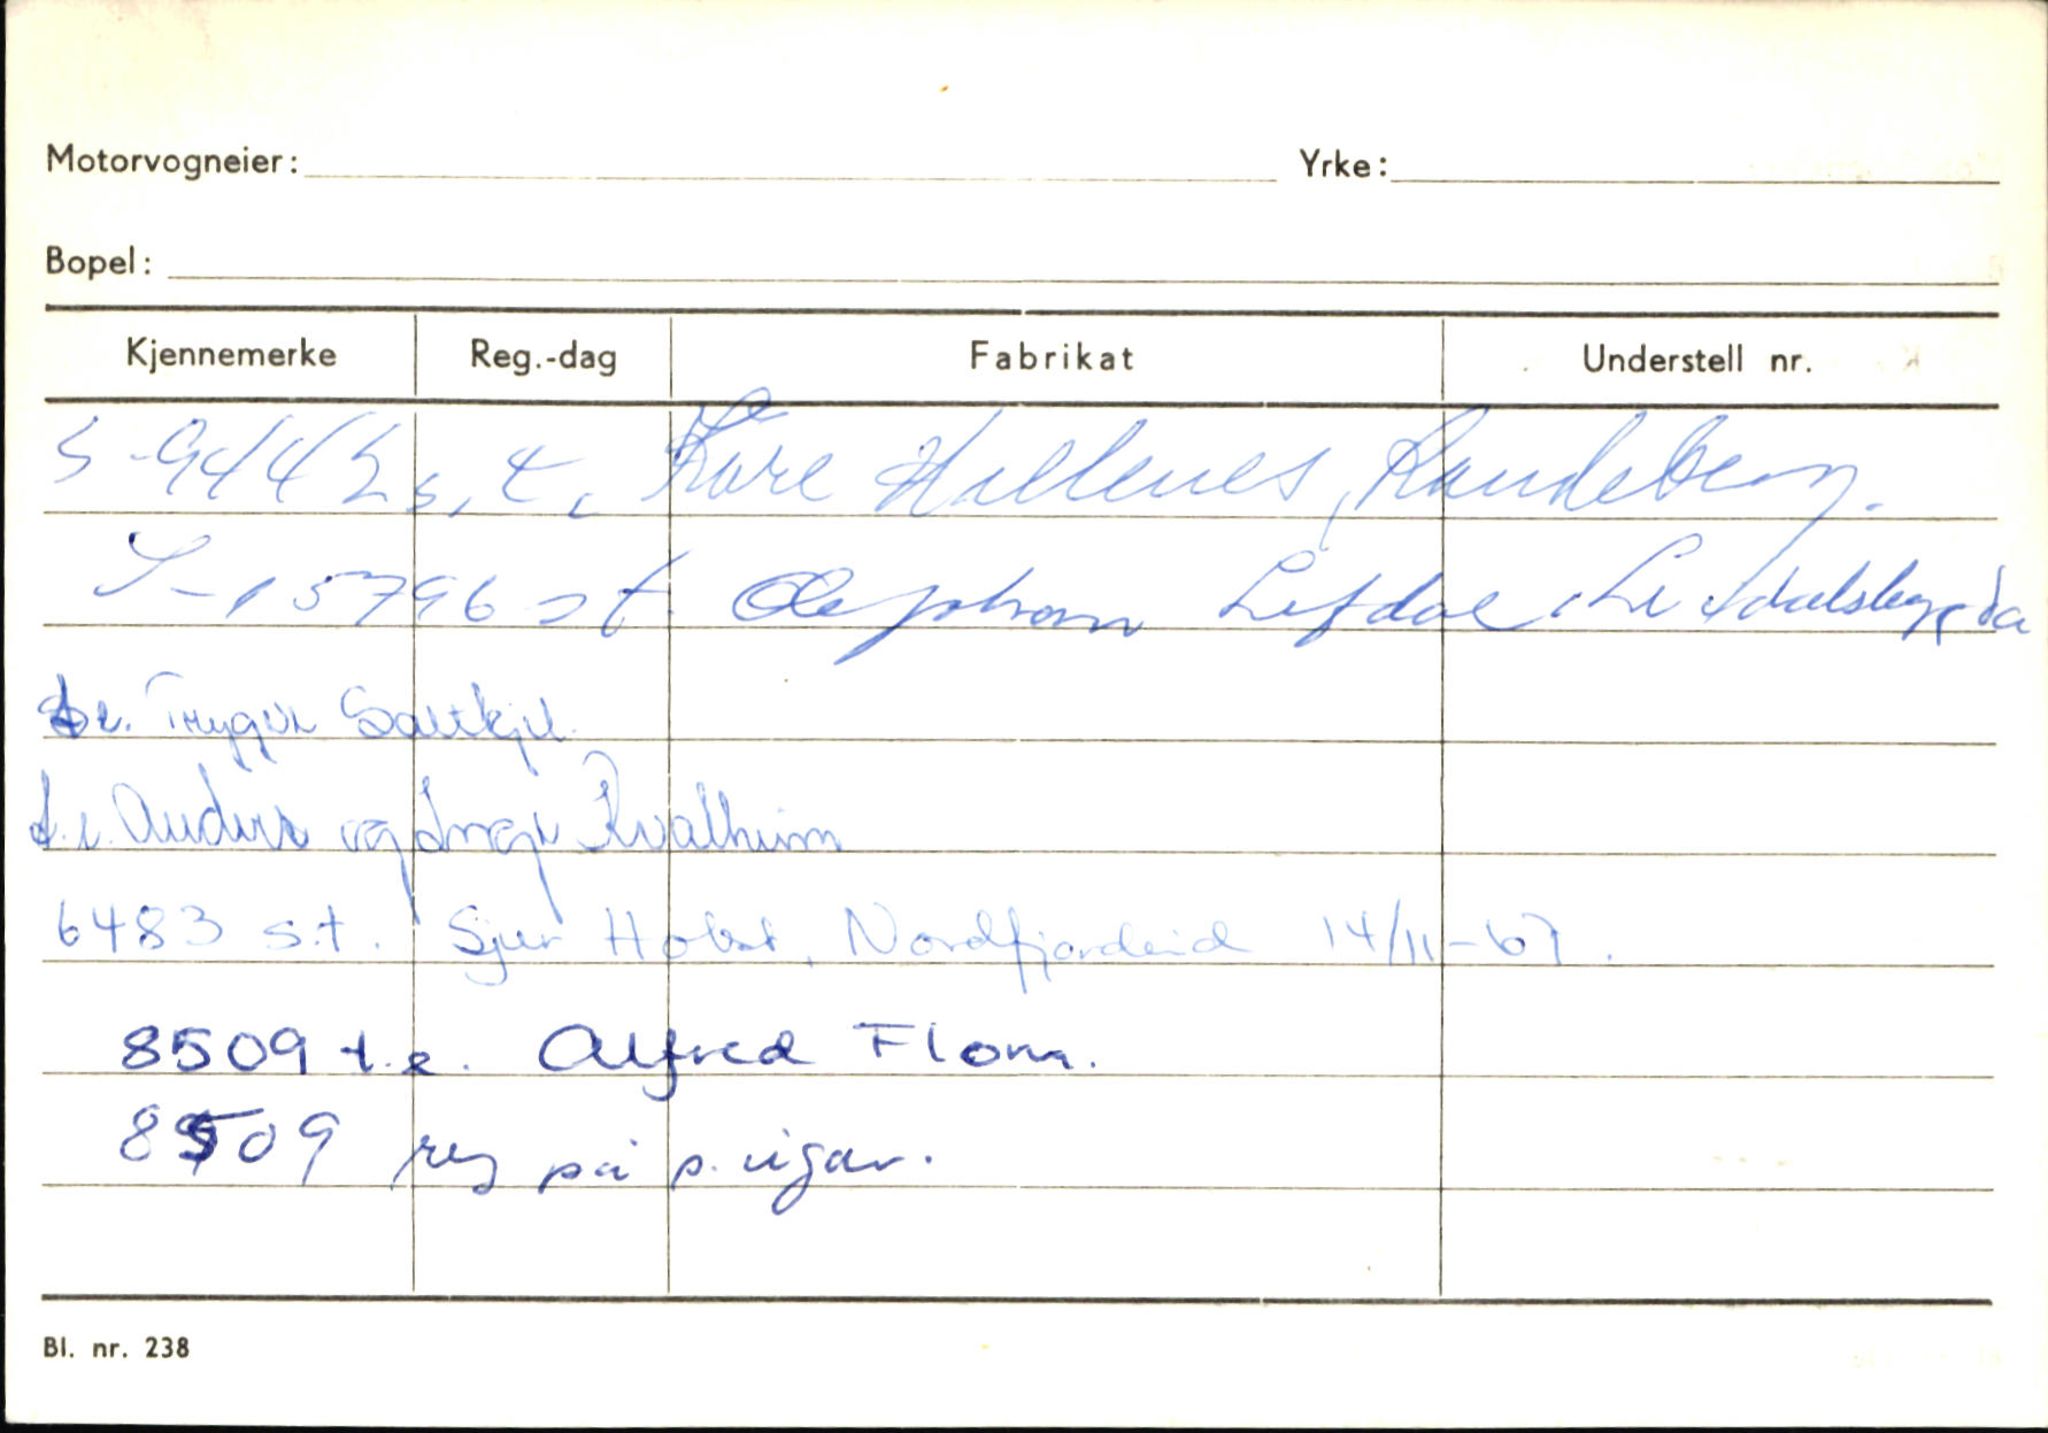 Motorvogneier: Yrke:
Bopel:
Kjennemerke Reg.-dag Fabrikat Understell nr.
S-9442 s.t. Kåre Hallenes, Randeberg.
S-15796 st. Ole Johan Lefdal
t.e. Trygve
t.e. Anders og Inge Kvalheim
6483 s.t. Sjur Hobst, Nordfjordeid 14/11-67.
8509 t.e. Alfred Flom.
8509 reg på p. eigar.
Bl. nr. 238